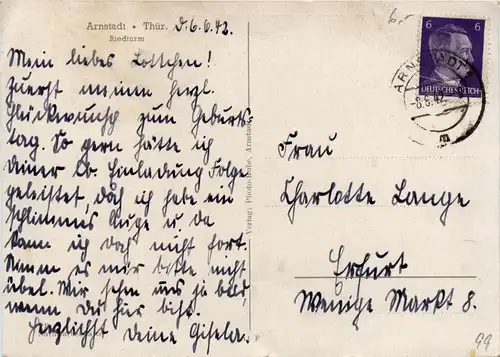 Arnstadt • Thür. d. 6.6.42.
Riedturm
Mein liebes Lottchen!
Zuerst meinen herzl.
Glückwunsch zum Geburts-
tag. So gern hätte ich
deiner lb. Einladung Folge
geleistet, doch ich habe ein
schlimmes Auge u. da
kann ich doch nicht fort.
Nimm es mir bitte nicht
übel. Wir sehn uns ja bald
wenn Du hier bist.
Herzlichst deine Gisela.
Verlag: Photo-
Arnstadt
6.-
6 6
DEUTSCHES REICH
ARNSTADT
8.6.42
Frau
Charlotte Lange
Erfurt
Wenige Markt 8.
99